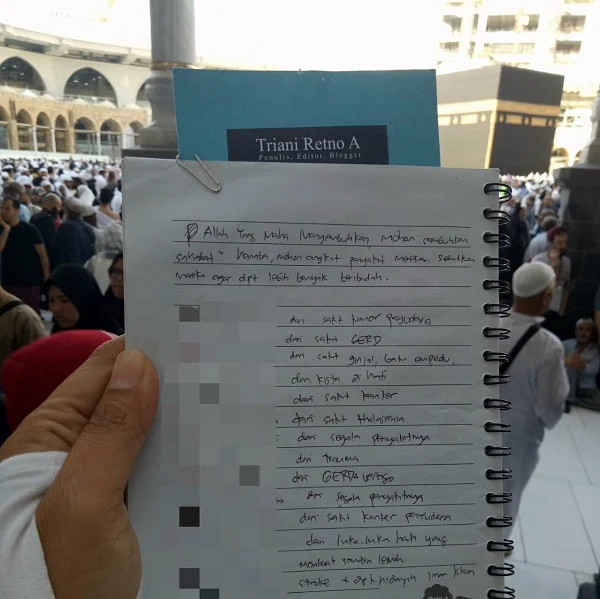 Triani Retno A
Penulis, Editor, Blogger
Ya Allah Yang Maha Menyembuhkan, mohon sembuhkan
sahabat² hamba, mohon angkat penyakit mereka. Sehatkan
mereka agar dpt lebih banyak beribadah.
dari sakit tumor payudara
dari sakit GERD
dari sakit ginjal, batu empedu,
dan kista di hati
dari sakit kanker
dari sakit thalasemia
dari segala penyakitnya
dari trauma
dari GERD & vertigo
dari segala penyakitnya
dari sakit kanker payudara
dari luka-luka hati yang
membuat lemah
stroke + hidayah iman Islam